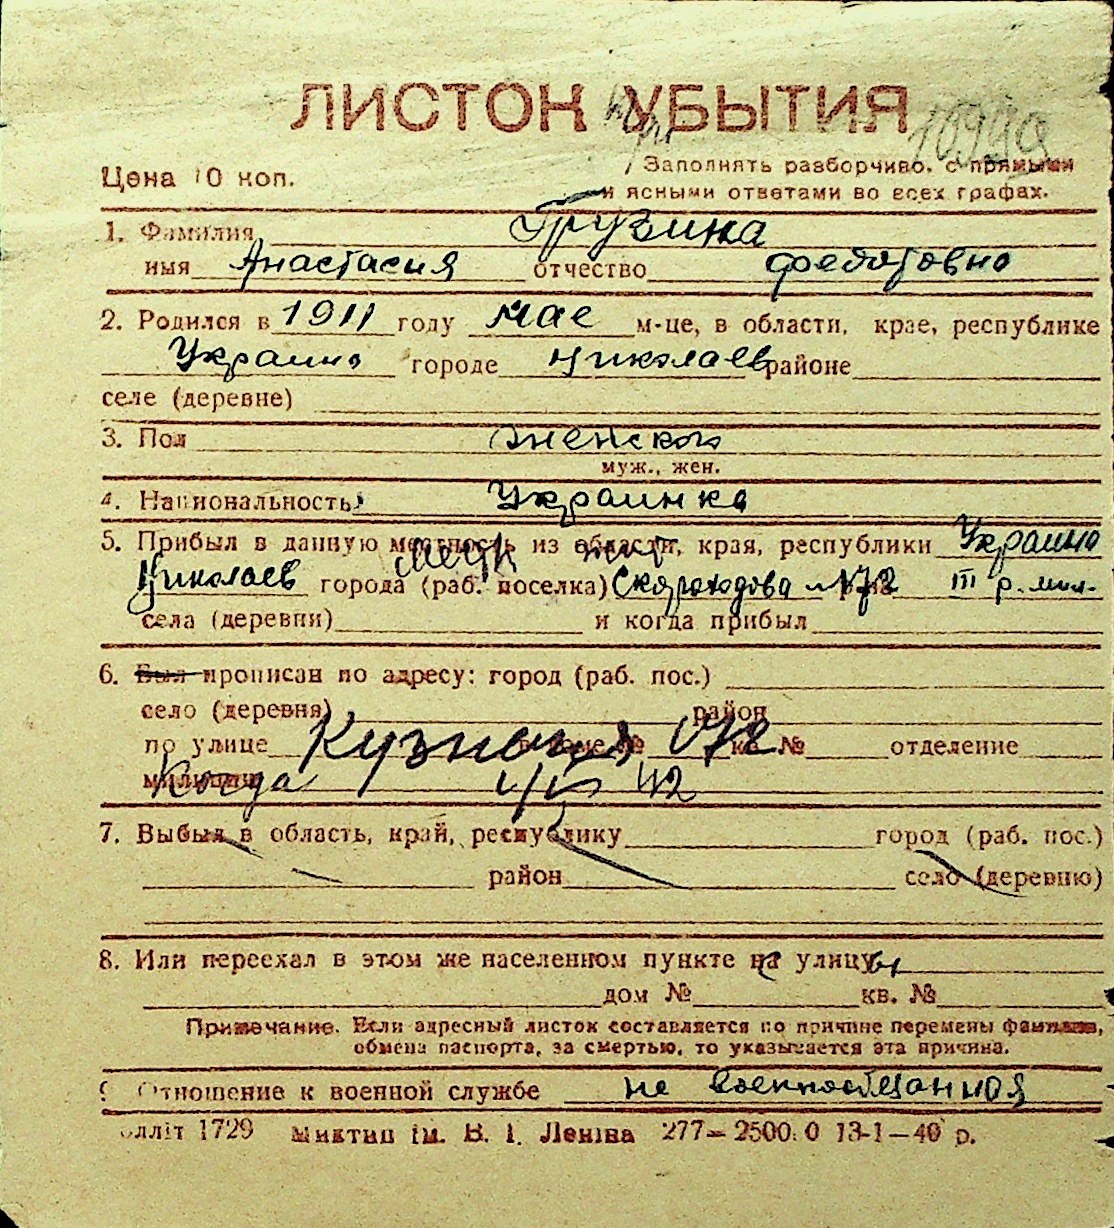 ЛИСТОК УБЫТИЯ
Цена 10 коп.
Заполнять разборчиво, с прямыми
и ясными ответами во всех графах.
1. Фамилия Грузина
имя Анастасия отчество Федотовно
2. Родился в 1911 году мае м-це, в области, крае, республике
Украина городе Николаев районе
селе (деревне)
3. Пол женского
муж., жен.
4. Национальность Украинка
5. Прибыл в данную местность из области, края, республики Украина
Николаев города (раб. поселка) Скороходова № 72 III р. мил.
села (деревни) и когда прибыл
6. Был прописан по адресу: город (раб. пос.)
село (деревня) район
по улице в доме № кв. № отделение
милиции Когда 42
7. Выбыл в область, край, республику город (раб. пос.)
район село (деревню)
8. Или переехал в этом же населенном пункте на улицу
дом № кв. №
Примечание. Если адресный листок составляется по причине перемены фамилии,
обмена паспорта, за смертью, то указывается эта причина.
9. Отношение к военной службе не военнообязанная
Облліт 1729 Миктип ім. В. І. Леніна 277—2500.0 13-1—40 р.